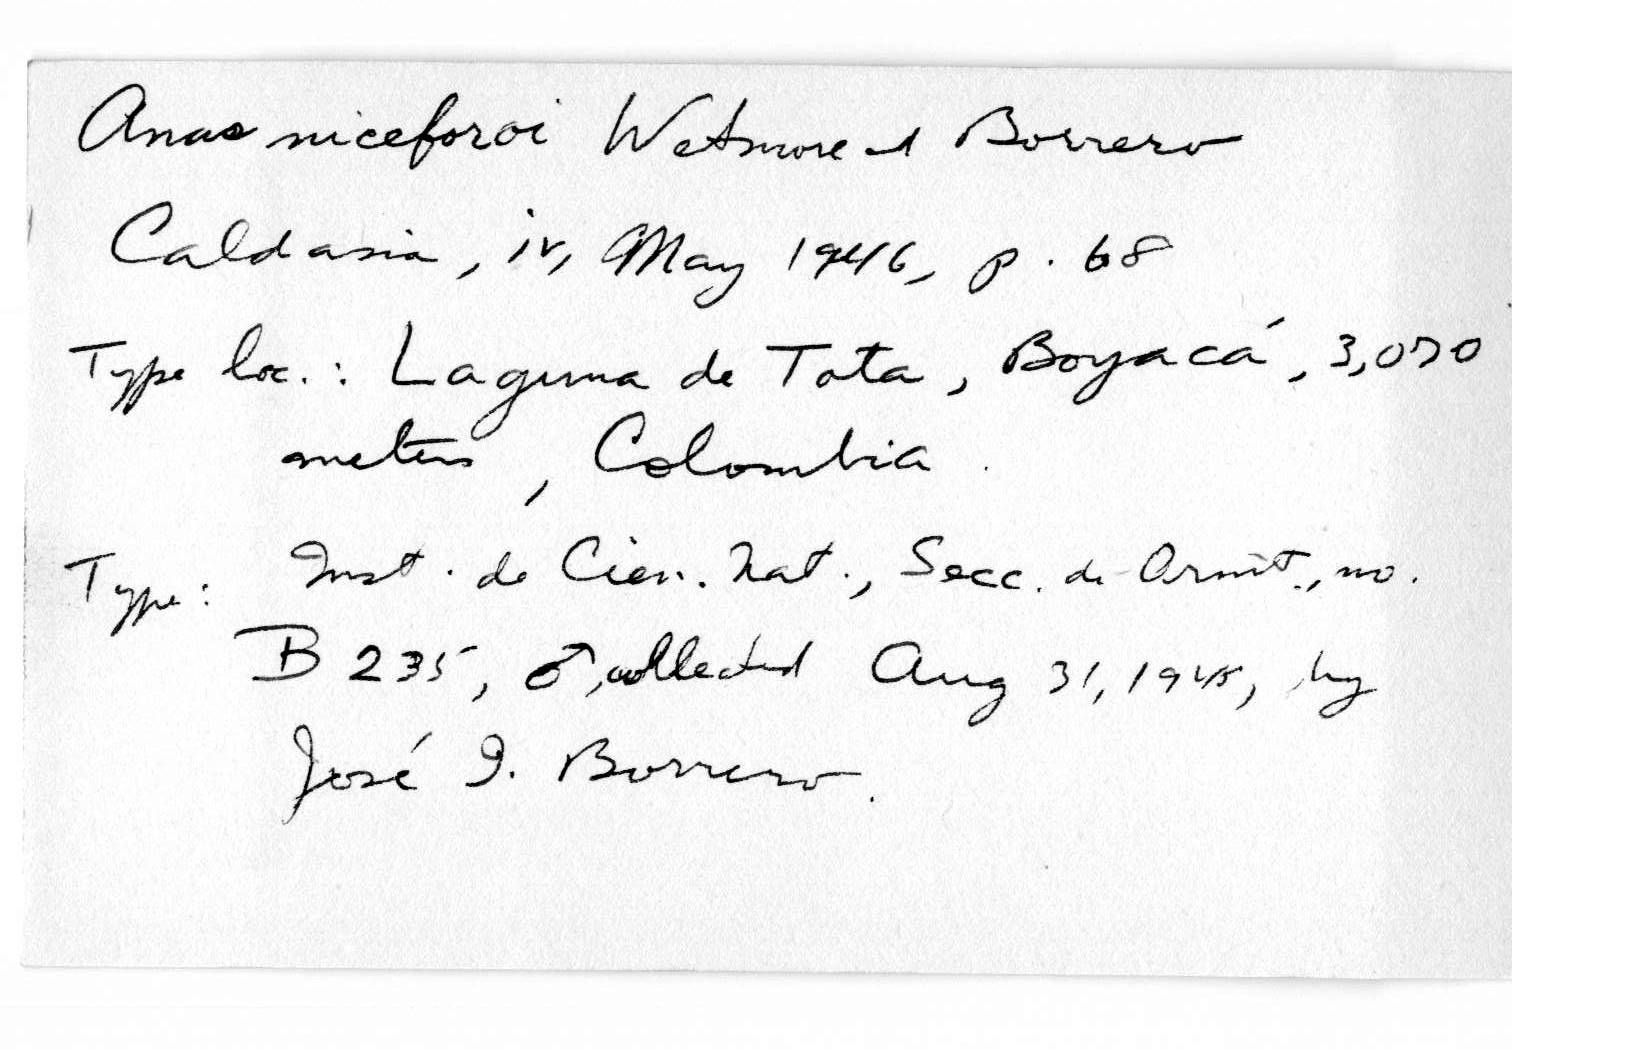 Anas niceforoi Wetmore and Borrero
Caldasia, iv, May 1946, p. 68
Type loc.: Laguna de Tota, Boyacá, 3,070
meters, Colombia.
Type: Inst. de Cien. Nat., Secc. de Ornit., no.
B 235, ♂, collected Aug 31, 1945, by
José I. Borrero.